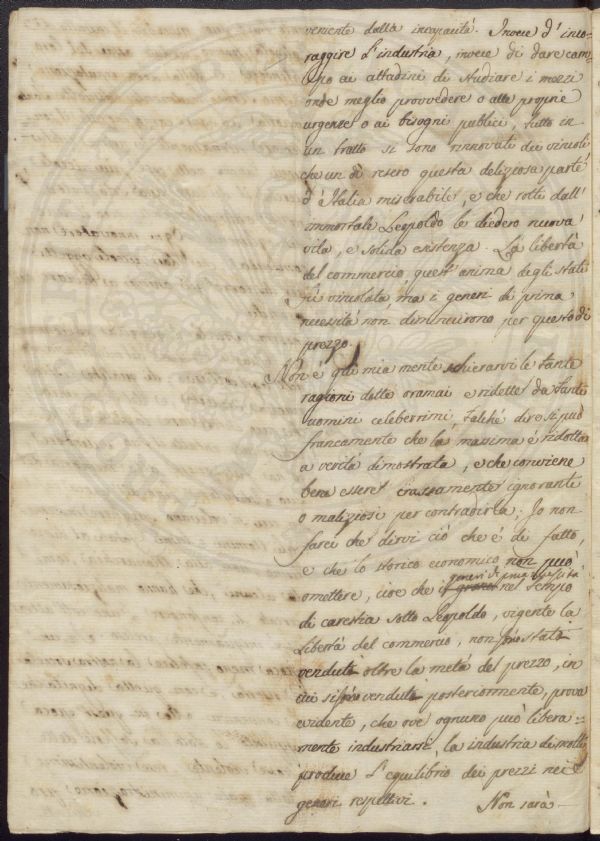 veniente dalla incapacità. Invece d'inco-
raggire l'industria, invece di dare cam-
po ai cittadini di studiare i mezzi
onde meglio provvedere o alle proprie
urgenze o ai bisogni publici, tutto in
un tratto si sono rinnovati dei vincoli
che un dì resero questa deliziosa parte
d'Italia miserabile, e che rotti dall'
immortale Leopoldo le diedero nuova
vita, e solida esistenza. La libertà
del commercio quest'anima degli stati
fù vincolata, ma i generi di prima
necessità non diminuirono per questo di
prezzo.
Non è quì mia mente schierarvi le tante
ragioni dette oramai e ridette da tanti
uomini celeberrimi, talchè dire si può
francamente che la massima è ridotta
a verità dimostrata, e che conviene
bene essere crassamente ignorante
o maliziosi per contradirla; Io non
farei che dirvi ciò che è di fatto,
e che lo storico economico non può
generi di prima necessità
omettere, cioè che i nel tempo
di carestia sotto Leopoldo, vigente la
libertà del commercio, non stati
venduti oltre la metà del prezzo, in
cui venduti posteriormente, prova
evidente, che ove ognuno può libera-
mente industriarsi, la industria di molti
produce l'equilibrio dei prezzi nei
generi respettivi. Non sarà